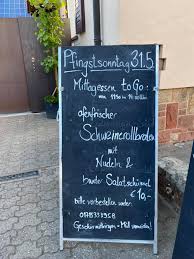 Pfingstsonntag 31.5.
Mittagessen to Go:
von 11:30 - 14:00 Uhr
ofenfrischer
Schweinerollbraten
mit
Nudeln &
bunter Salatschüssel
€ 10,-
bitte vorbestellen unter:
Geschirrmitbringen -